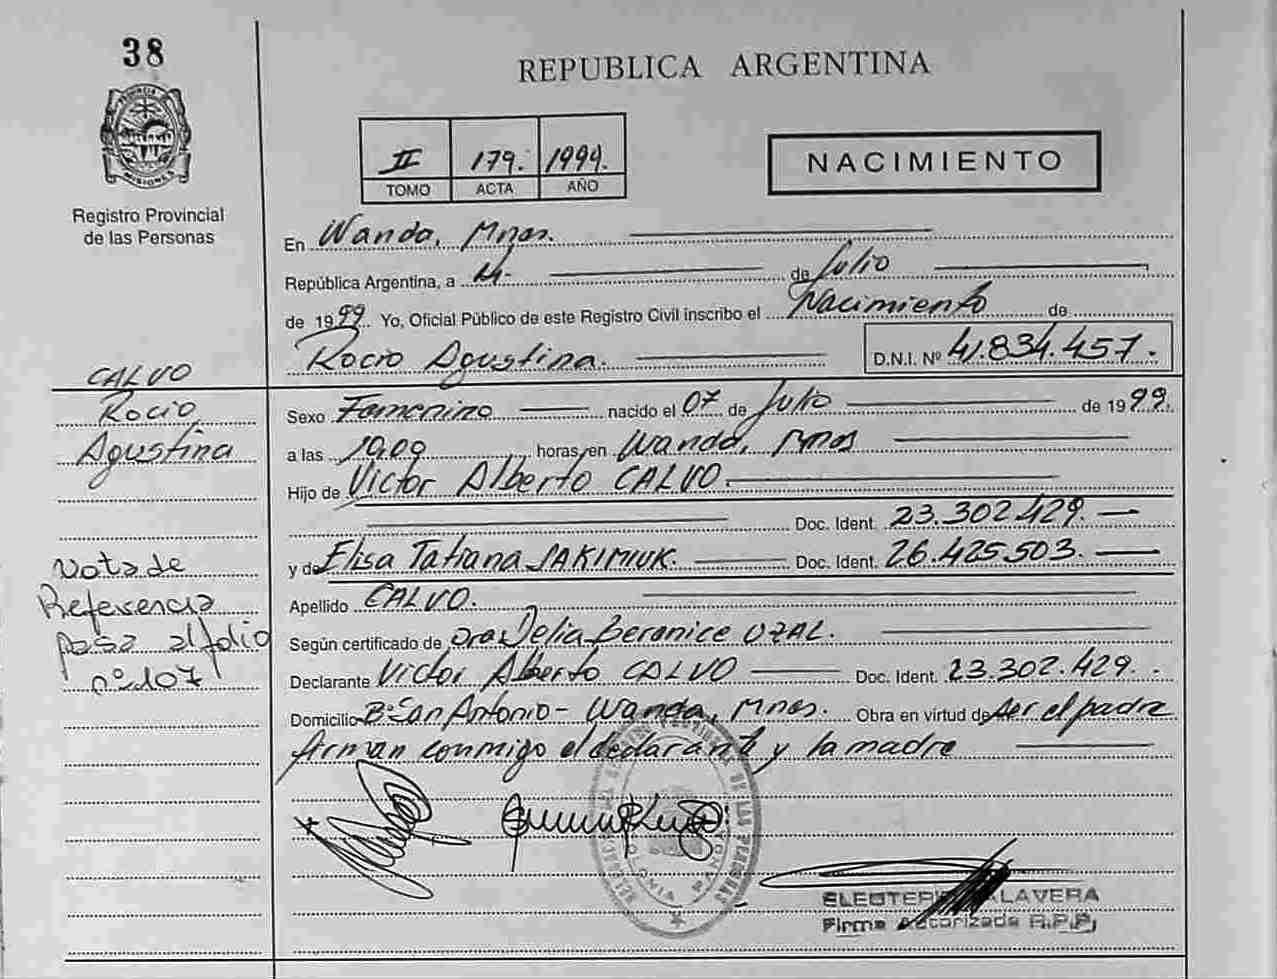 38
REPUBLICA ARGENTINA
PROVINCIA
MISIONES
Registro Provincial
de las Personas
II 179. 1999.
TOMO ACTA AÑO
NACIMIENTO
En Wanda, Mnes.
República Argentina, a de Julio
de 1999 Yo, Oficial Público de este Registro Civil inscribo el Nacimiento de
Rocio Agustina. D.N.I. Nº 41.834.457.
CALVO
Rocio
Agustina
Sexo Femenino nacido el 07 de Julio de 1999.
a las 19,00 horas, en Wanda, Mnes
Hijo de Victor Alberto CALVO.
Doc. Ident. 23.302.429.
y de Elisa Tatiana JAKIMIUK. Doc. Ident. 26.425.503.
Nota de
Referencia
pasa al folio
nº 107
Apellido CALVO.
Según certificado de Dra. Delia Beronice UZAL.
Declarante Victor Alberto CALVO Doc. Ident. 23.302.429.
Domicilio Bº San Antonio - Wanda, Mnes. Obra en virtud de ser el padre
firman conmigo el declarante y la madre
DE LAS PERSONAS
ALAVERA
Firma Autorizada R.P.P.